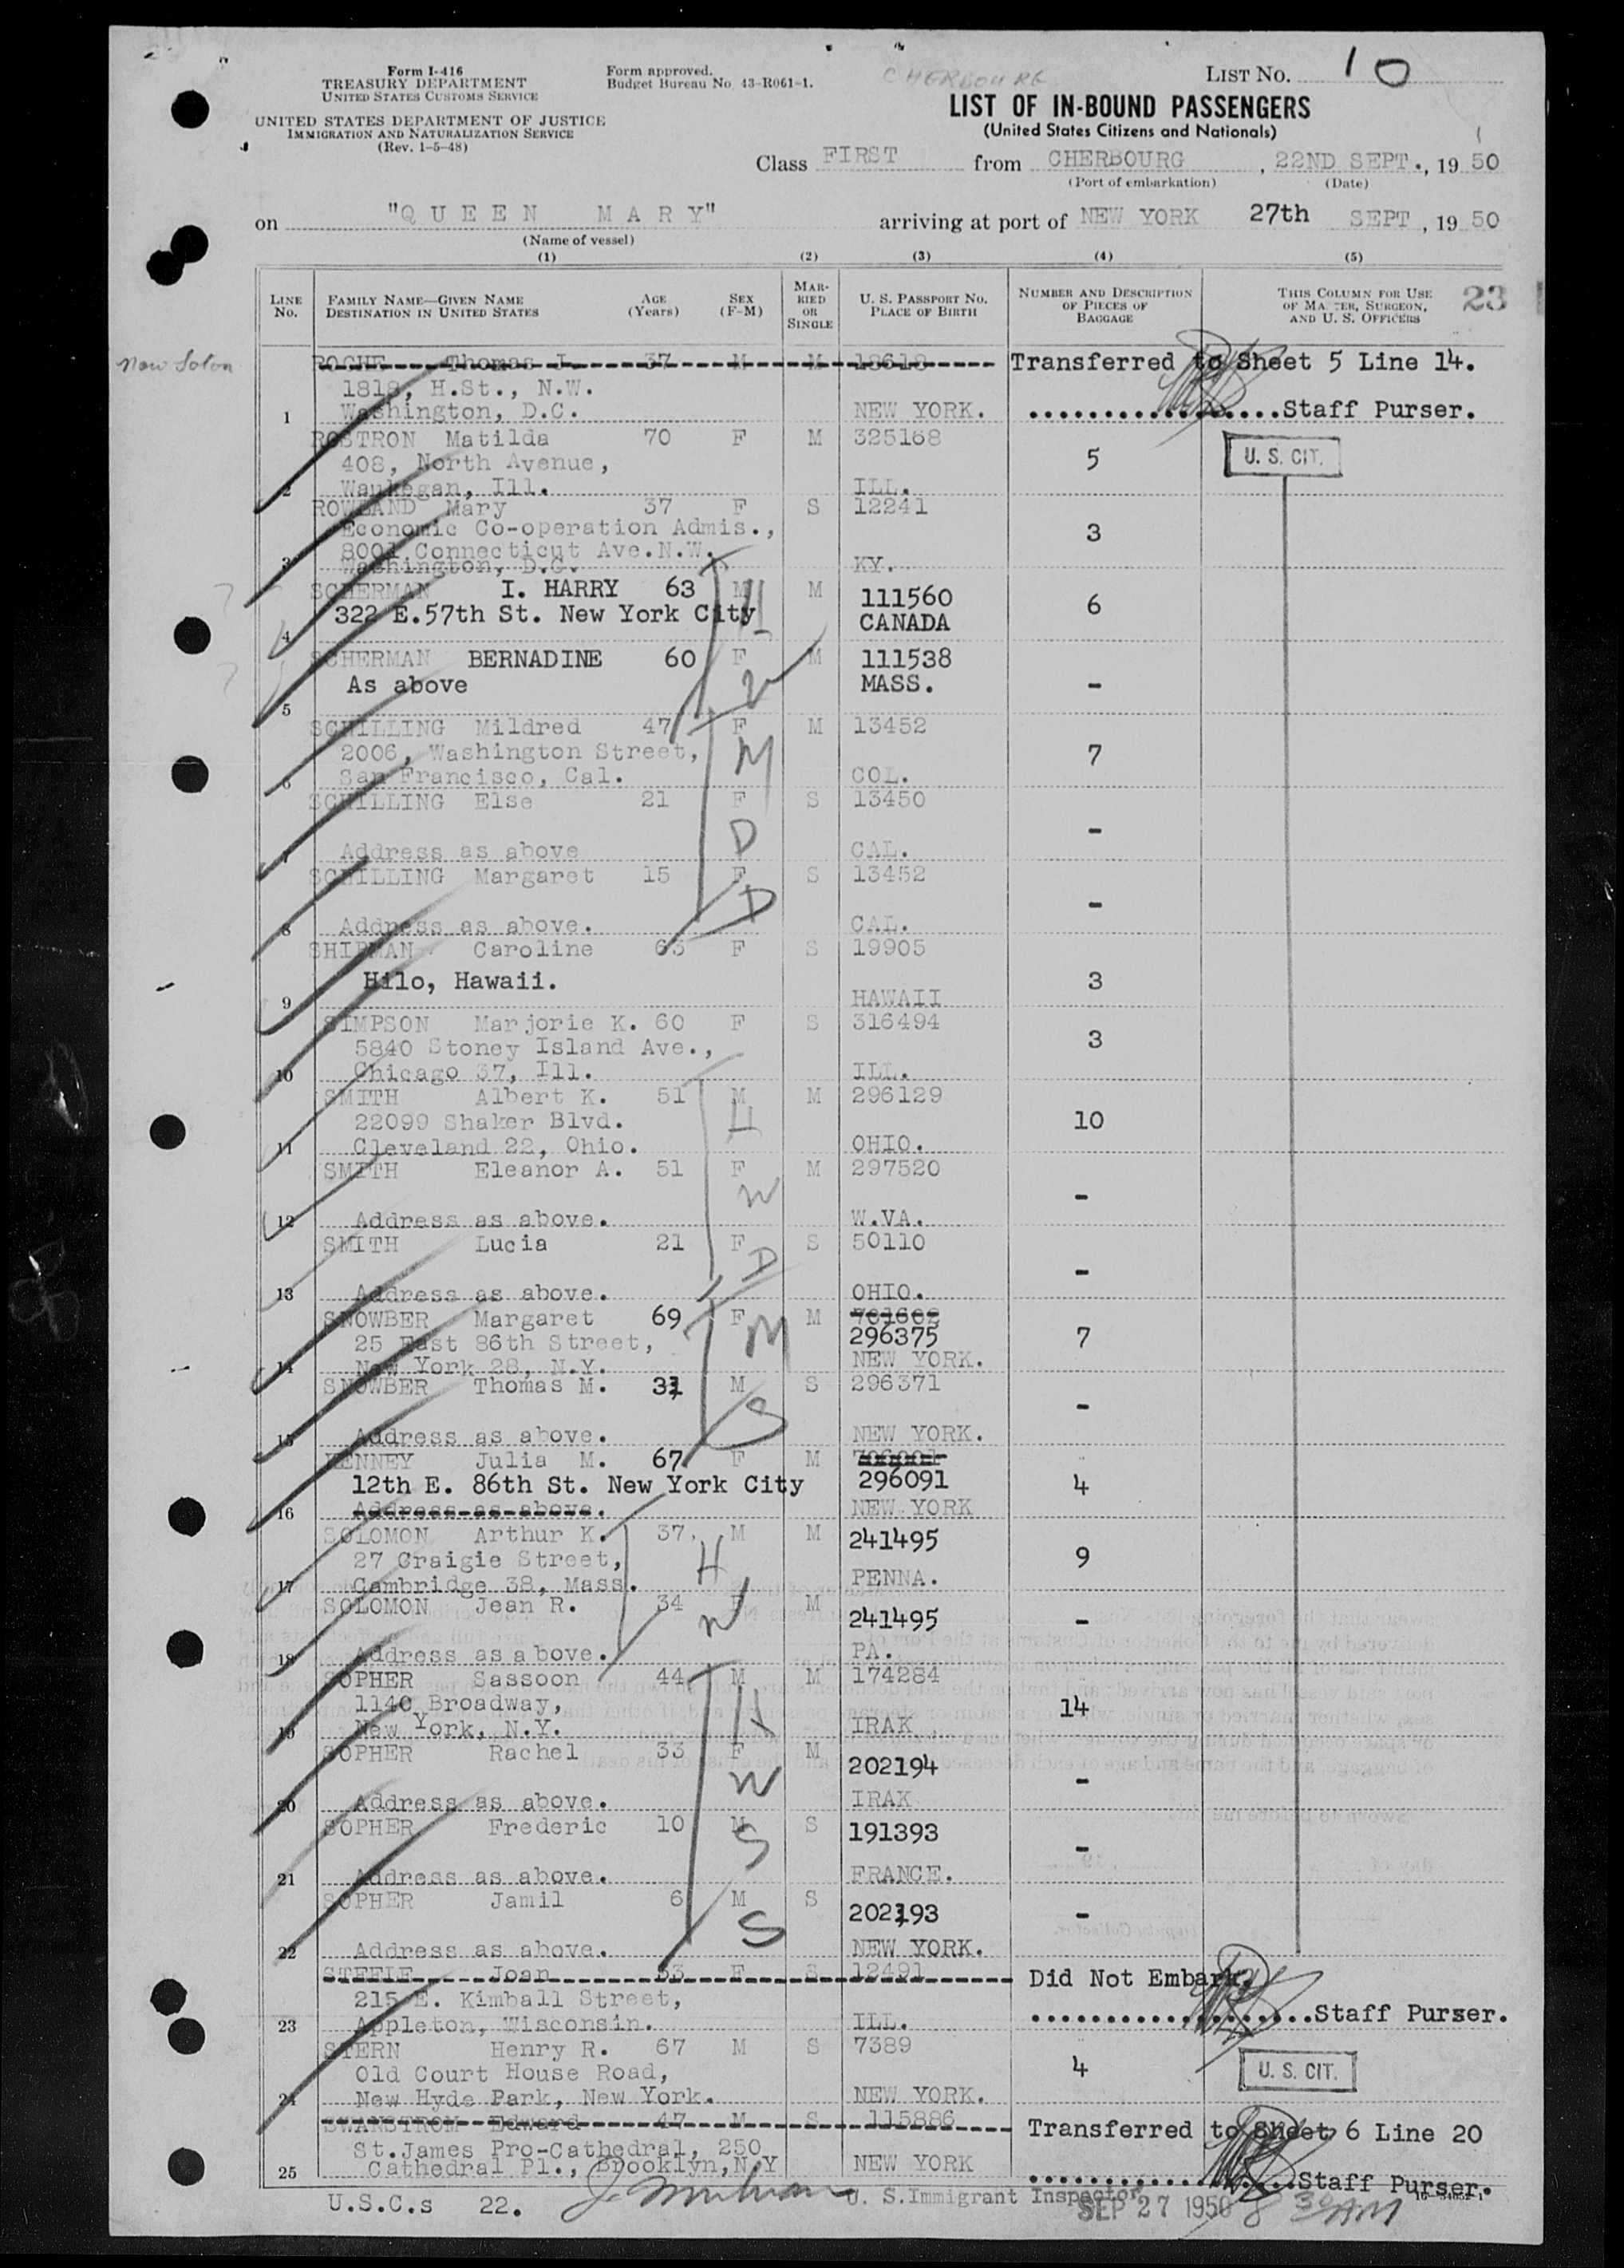 Form I-416
TREASURY DEPARTMENT
UNITED STATES CUSTOMS SERVICE
UNITED STATES DEPARTMENT OF JUSTICE
IMMIGRATION AND NATURALIZATION SERVICE
(Rev. 1-5-48)
Form approved.
Budget Bureau No. 43-R061-1.
CHERBOURG
LIST NO. 10
LIST OF IN-BOUND PASSENGERS
(United States Citizens and Nationals)
Class FIRST from CHERBOURG, 22ND SEPT., 19 50
(Port of embarkation) (Date)
on "QUEEN MARY" arriving at port of NEW YORK 27th SEPT, 19 50
(Name of vessel)
(1) (2) (3) (4) (5)
LINE NO. FAMILY NAME—GIVEN NAME DESTINATION IN UNITED STATES AGE (Years) SEX (F-M) MARRIED OR SINGLE U. S. PASSPORT NO. PLACE OF BIRTH NUMBER AND DESCRIPTION OF PIECES OF BAGGAGE THIS COLUMN FOR USE OF MASTER, SURGEON, AND U. S. OFFICERS 23
ROCHE Thomas J. 37 M M 18618 Transferred to Sheet 5 Line 14.
1818, H.St., N.W.
1 Washington, D.C. NEW YORK. Staff Purser.
ROSTRON Matilda 70 F M 325168
408, North Avenue, 5 U. S. CIT.
2 Waukegan, Ill. ILL.
ROWLAND Mary 37 F S 12241
Economic Co-operation Admis., 3
8001 Connecticut Ave.N.W.
3 Washington, D.C. KY.
SCHERMAN I. HARRY 63 M M 111560 6
4 322 E.57th St. New York City CANADA
H
SCHERMAN BERNADINE 60 F M 111538
5 As above MASS. -
W
SCHILLING Mildred 47 F M 13452
2006, Washington Street, 7
6 San Francisco, Cal. COL.
M
SCHILLING Else 21 F S 13450
-
7 Address as above CAL.
D
SCHILLING Margaret 15 F S 13452
-
8 Address as above. CAL.
D
SHIPMAN Caroline 63 F S 19905
9 Hilo, Hawaii. HAWAII 3
SIMPSON Marjorie K. 60 F S 316494
5840 Stoney Island Ave., 3
10 Chicago 37, Ill. ILL.
SMITH Albert K. 51 M M 296129
22099 Shaker Blvd. 10
11 Cleveland 22, Ohio. OHIO.
H
SMITH Eleanor A. 51 F M 297520
-
12 Address as above. W.VA.
W
SMITH Lucia 21 F S 50110
-
13 Address as above. OHIO.
D
SNOWBER Margaret 69 F M
25 East 86th Street, 296375 7
14 New York 28, N.Y. NEW YORK.
M
SNOWBER Thomas M. M S 296371
-
15 Address as above. NEW YORK.
S
KENNEY Julia M. 67 F M
12th E. 86th St. New York City 296091 4
16 Address as above. NEW YORK
SOLOMON Arthur K. 37 M M 241495
27 Craigie Street, 9
17 Cambridge 38, Mass. PENNA.
H
SOLOMON Jean R. 34 F M 241495
-
18 Address as above. PA.
W
SOPHER Sassoon 44 M M 174284
1140 Broadway, 14
19 New York, N.Y. IRAK
H
SOPHER Rachel 33 F M 202194
-
20 Address as above. IRAK
W
SOPHER Frederic 10 M S 191393
-
21 Address as above. FRANCE.
S
SOPHER Jamil 6 M S 202193
-
22 Address as above. NEW YORK.
S
STEELE Joan 53 F S 12491 Did Not Embark.
215 E. Kimball Street,
23 Appleton, Wisconsin. ILL. Staff Purser.
STERN Henry R. 67 M S 7389
Old Court House Road, 4 U. S. CIT.
24 New Hyde Park, New York. NEW YORK.
SWANSTROM Edward 47 M S 115886 Transferred to Sheet 6 Line 20
St.James Pro-Cathedral, 250
25 Cathedral Pl., Brooklyn,N.Y NEW YORK Staff Purser.
U.S.C.s 22. U. S. Immigrant Inspector
SEP 27 1950 8 30 AM